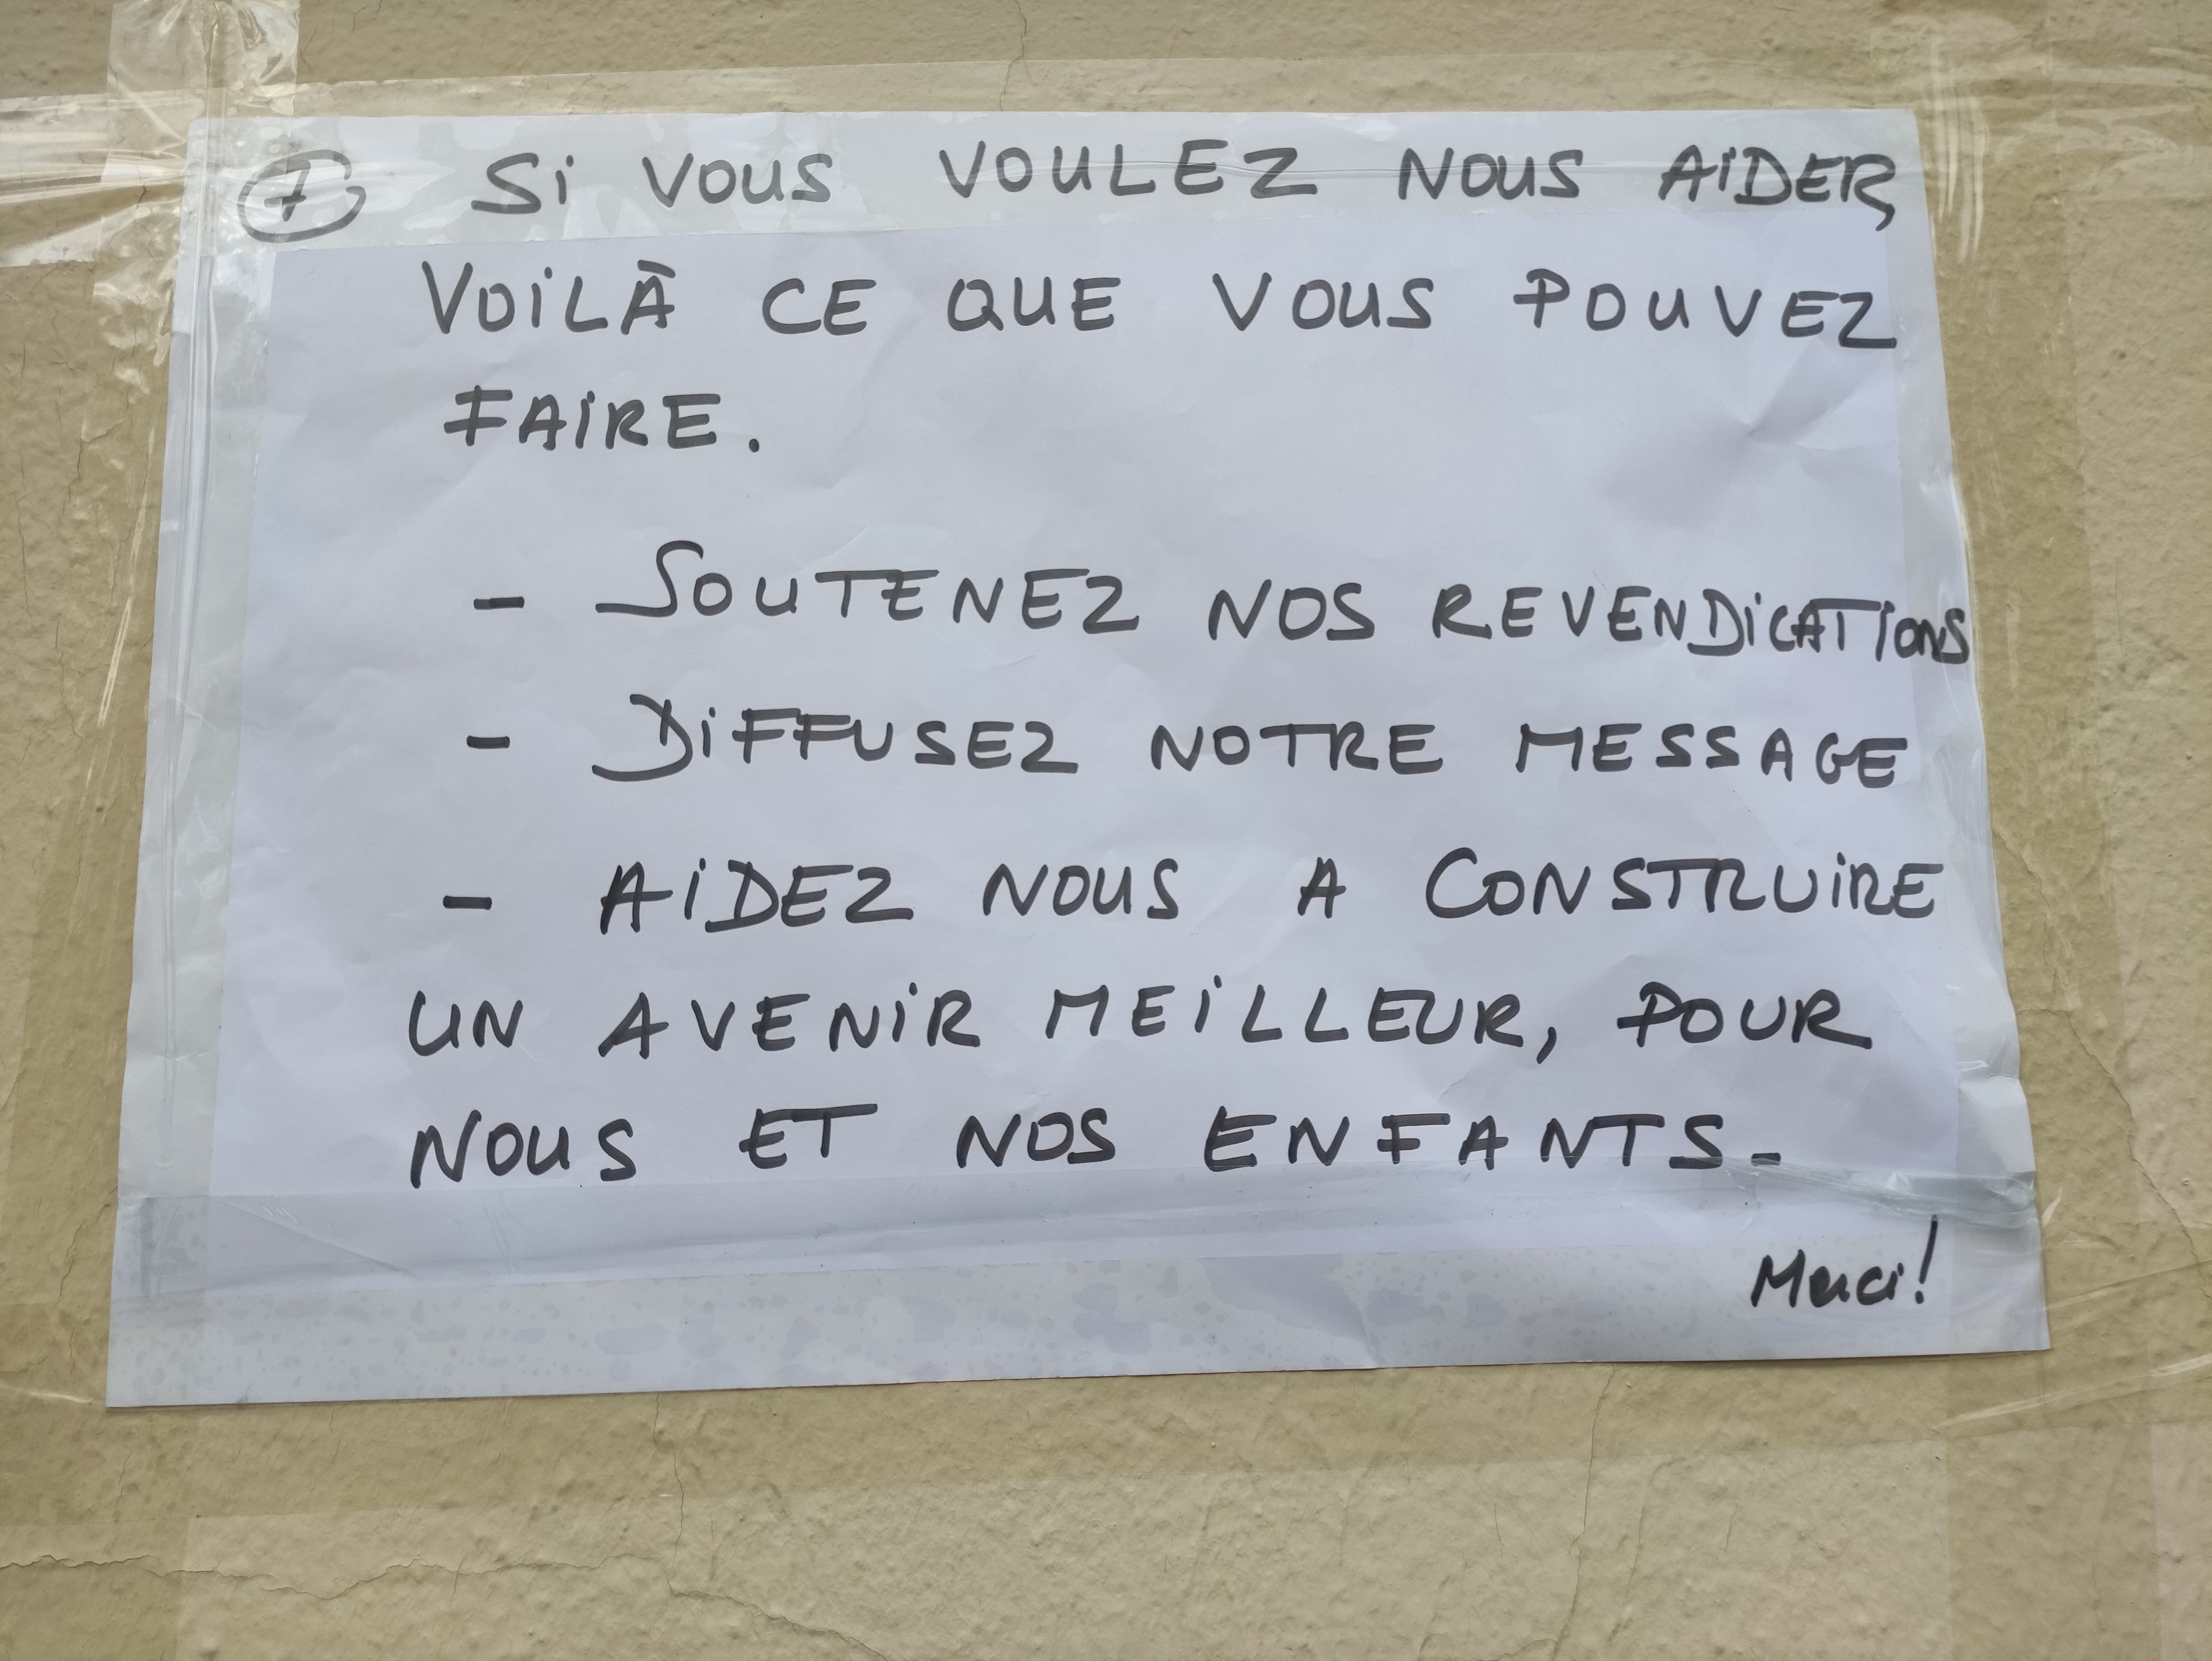 7 Si VOUS VOULEZ NOUS AiDER,
VOiLÀ CE QUE VOUS POUVEZ
FAiRE.
- SOUTENEZ NOS REVENDiCATiONS
- DiFFUSEZ NOTRE MESSAGE
- AiDEZ NOUS A CONSTRUiRE
UN AVENiR MEiLLEUR, POUR
NOUS ET NOS ENFANTS-
Merci!